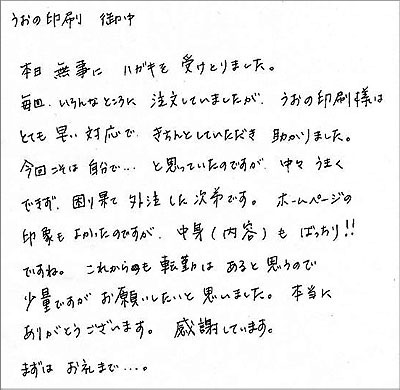 うおの印刷 御中
本日 無事に ハガキを 受けとりました。
毎回、いろんなところに 注文していましたが、うおの印刷様は
とても 早い 対応で、きちんとしていただき 助かりました。
今回こそは 自分で… と思っていたのですが、中々 うまく
できず、困り果て 外注した 次第です。 ホームページの
印象も よかったのですが、中身(内容)も ばっちり!!
ですね。 これからも 転勤は あると 思うので
少量ですが お願いしたいと 思いました。 本当に
ありがとうございます。 感謝しています。
まずは お礼まで…。